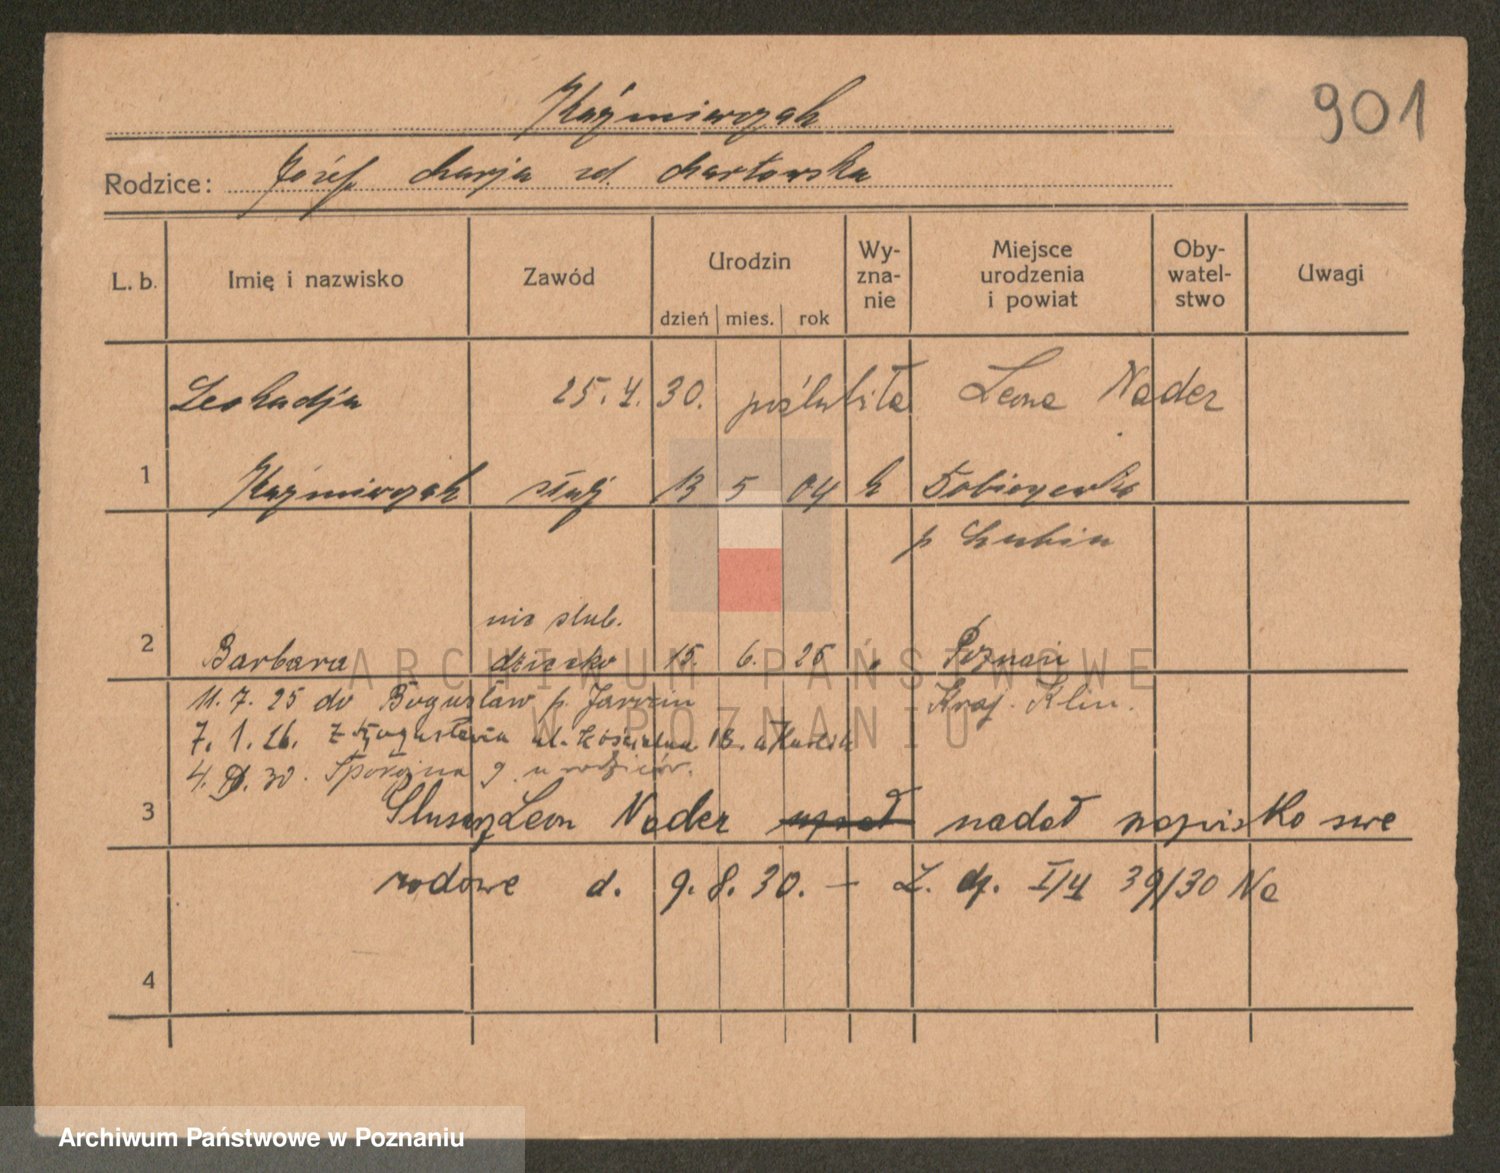 Kaźmierczak
901
Rodzice: Józef Marja zd. Markowska
L. b. Imię i nazwisko Zawód Urodzin dzień mies. rok Wy-zna-nie Miejsce urodzenia i powiat Oby-watel-stwo Uwagi
Leokadja 25. 4. 30. poślubiła Leona Nader
1 Kaźmierczak służ 13 5 04 k
p Lubin
nie ślub.
2 Barbara dziecko 15. 6. 25 " Poznań
11. 7. 25 do Bogusław p. Jarocin Kraj. Klin.
7. 1. 26. z Bogusławia ul. Kościelna 18.
4. IV. 30. Spokojna 9 u rodziców.
3 Ślusarz Leon Nader nadał nazwisko swe
rodowe d. 9. 8. 30. – L. dz. I/4 39/30 Na
4
ARCHIWUM PAŃSTWOWE
W POZNANIU
Archiwum Państwowe w Poznaniu